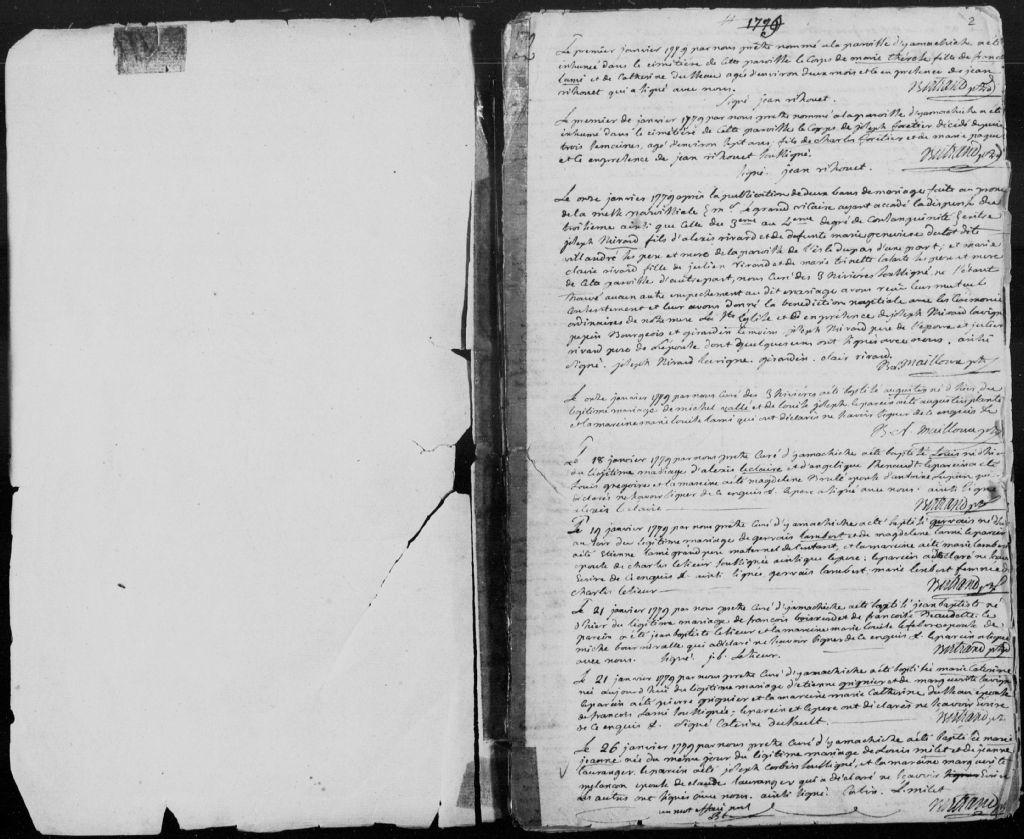 1779
2
Le premier janvier 1779 par nous prêtre nommé a la paroisse d'yamachiche a été
inhumé dans le cimetière de cette paroisse le Corps de marie thérèse fille de franc
lami et de Catherine du Heau agés d'environ deux mois et le en presence de jean
rihouet qui a signé avec nous.
Bertrand ptre
signé jean rihouet.
Le premier de janvier 1779 par nous prêtre nommé a la paroisse d'yamachiche a été
inhumé dans le cimetière de cette paroisse le Corps de joseph foretier décédé depuis
trois semaines, agé d'environ sept ans, fils de charles foretier et de marie paque
et le en presence de jean rihouet soussigné.
Bertrand ptre
signé jean rihouet.
Le onze janvier 1779 après la publication de deux bans de mariage faits au prone
de la messe paroissiale Mr. Le grand vicaire ayant accordé la dispense du
troisieme ainsi que celle du 3eme au 4eme degré de Consanguinité
joseph Rivard fils d'alexis rivard et de defunte marie genevieve dutot dit
villandré ses pere et mere de la paroisse de l'isle dupas d'une part; et marie
claire rivard fille de julien rivard et de marie trinette ses pere et mere
de cette paroisse d'autre part, nous Curé des 3 Rivières soussigné ne s'étant
trouvé aucun autre empechement au dit mariage avons reçu leur mutuel
Consentement et leur avons donné la benediction nuptiale avec les Ceremonies
ordinaires de notre mere la Ste Eglise et en presence de joseph Rivard lavigne
pepin Bourgeois et girardin temoins joseph Rivard pere de l'epoux et julien
rivard pere de l'epouse dont quelques uns ont signés avec nous. ainsi
signé. joseph Rivard lavigne. girardin. clair rivard.
Bd. mailloux ptre
Le onze janvier 1779 par nous Curé des 3 Rivières a été baptisé augustin né d'hier du
legitime mariage de michel vallé et de louise joseph le parein a été augustin plante
et la mareine marie louise lami qui ont déclarés ne savoir signer de ce enquis &
B. A. mailloux ptre
Le 18 janvier 1779 par nous prêtre Curé d'yamachiche a été baptisé Louis né d'hier
du legitime mariage d'alexis leclaire et d'angelique Thenault le parein a été
Louis gregoire et la mareine a été magdelene Brulé epouse d'antoine lupien qui
déclarés ne savoir signer de ce enquis &. le pere a signé avec nous. ainsi signé
alexis l claire
Bertrand ptre
Le 19 janvier 1779 par nous prêtre Curé d'yamachiche a été baptisé gervais né d'hier
au soir du legitime mariage de gervais lambert et de magdelene lami le parein
a été Etienne lami grand pere maternel de l'enfant, et la mareine a été marie lambert
epouse de charles lesieur soussignés ainsi que le pere; le parein a déclaré ne savoir
Ecrire de ce enquis &. ainsi signés gervais lambert. marie lembert femme de
charles lesieur
Bertrand ptre
Le 21 janvier 1779 par nous prêtre Curé d'yamachiche a été baptisé jean baptiste né
d'hier du legitime mariage de francois brisard et de francoise Beaudette. le
parein a été jean baptiste lesieur et la mareine marie louise lefebvre epouse de
miche bournivalle qui a déclaré ne savoir signer de ce enquis &. le parein a signé
avec nous. signé j.b. Lesieur.
Bertrand ptre
Le 21 janvier 1779 par nous prêtre Curé d'yamachiche a été baptisée marie Caterine
née aujourd'hui du legitime mariage d'etienne grignier et de marguerite lavigne
le parein a été pierre grignier et la mareine marie Catherine du Heau epouse
de francois lami soussignée; le parein et le pere ont déclarés ne savoir Ecrire
de ce enquis &. Signé Caterine du Hault.
Bertrand ptre
Le 26 janvier 1779 par nous prêtre Curé d'yamachiche a été baptisée marie
jeanne née du même jour du legitime mariage de Louis milet et de jeanne
lauranger. le parein a été joseph Corbin soussigné, et la mareine marguerite
melancon epouse de claude lauranger qui a déclaré ne savoir Ecrire
les autres ont signés avec nous. ainsi signé. Corbin. L. milet
un mot effacé nul
Bt
Bertrand